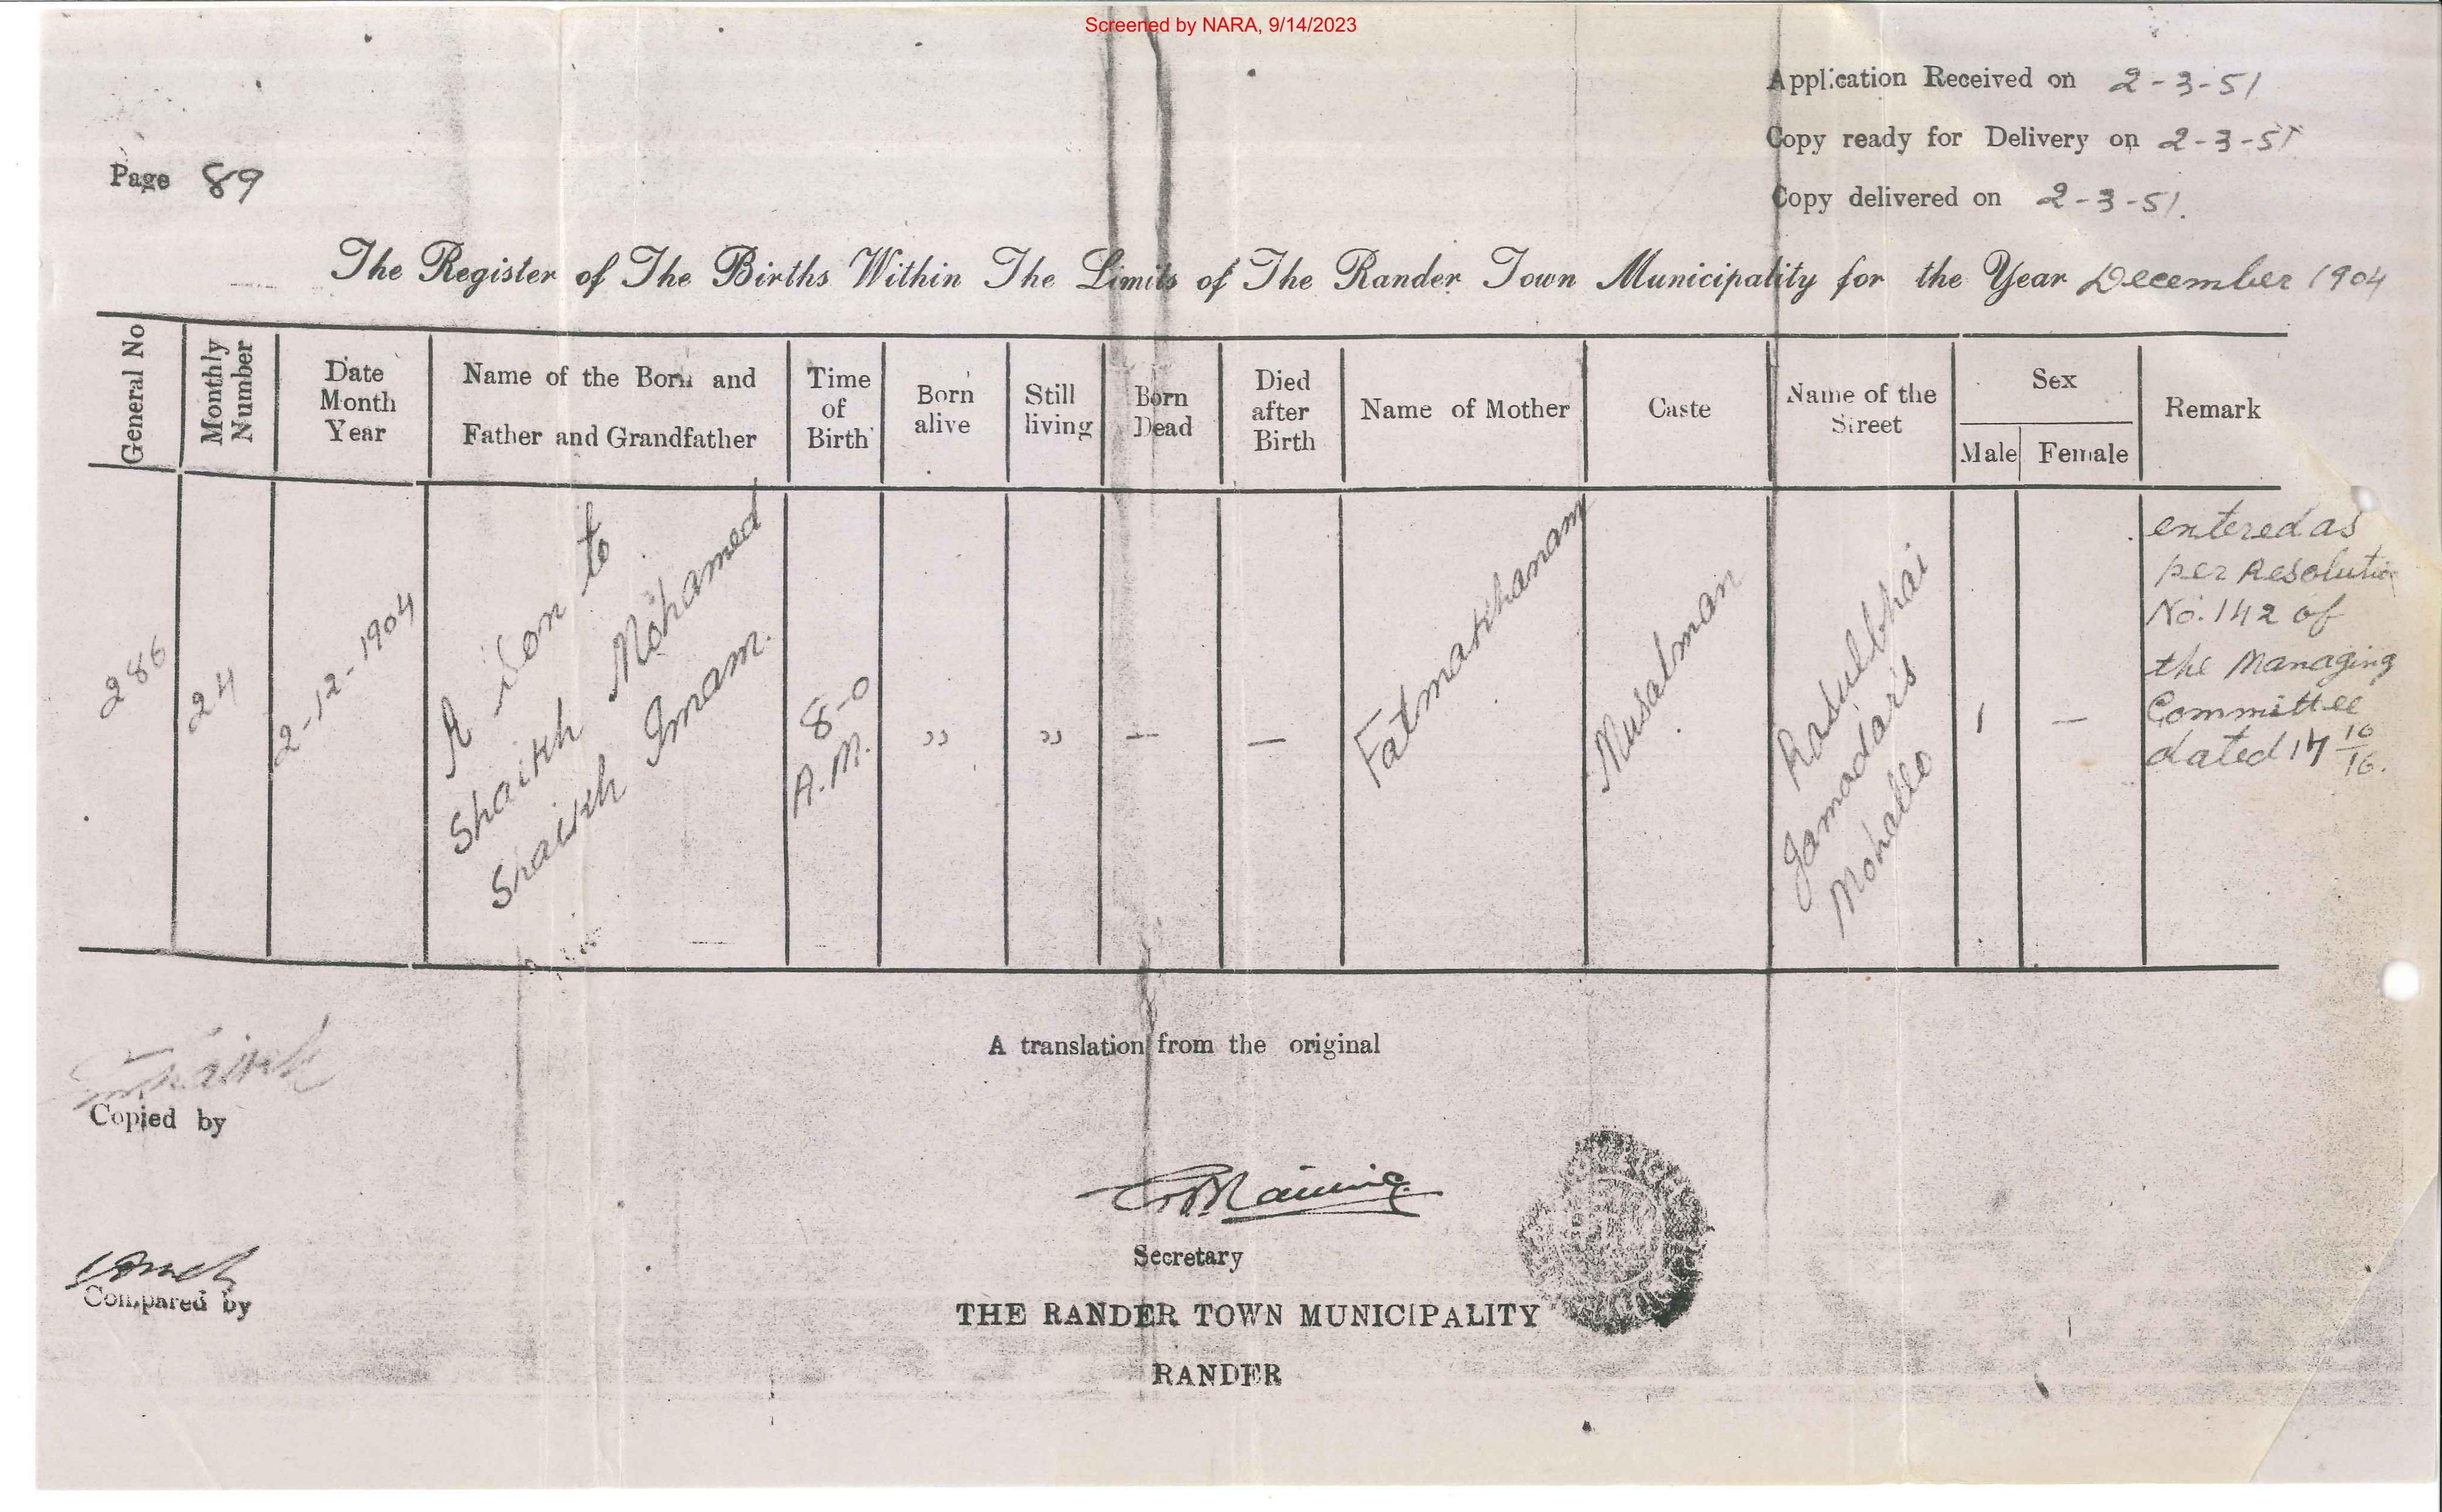 Screened by NARA, 9/14/2023
Application Received on 2-3-51
Copy ready for Delivery on 2-3-51
Page 89
Copy delivered on 2-3-51.
The Register of The Births Within The Limits of The Rander Town Municipality for the Year December 1904
General No
Monthly Number
Date Month Year
Name of the Born and Father and Grandfather
Time of Birth
Born alive
Still living
Born Dead
Died after Birth
Name of Mother
Caste
Name of the Street
Sex
Male
Female
Remark
286
24
2-12-1904
A Son to
Shaikh Mohamed
Shaikh Imam.
8-0
A.M.
,,
,,
—
—
Fatmakhanam
Musalman
Rasulbhai
Jamadar's
Mohallo
1
—
entered as
per Resolution
No. 142 of
the Managing
Committee
dated 17 10/16.
A translation from the original
Shaikh
Copied by
Secretary
Compared by
THE RANDER TOWN MUNICIPALITY
RANDER